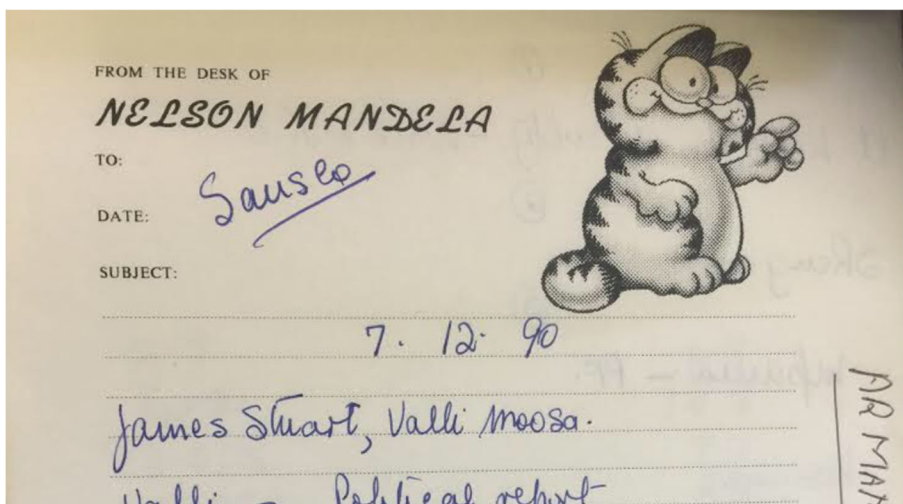 FROM THE DESK OF
NELSON MANDELA
TO:
Sausco
DATE:
SUBJECT:
7. 12. 90
James Stuart, Valli Moosa.
Valli — Political report